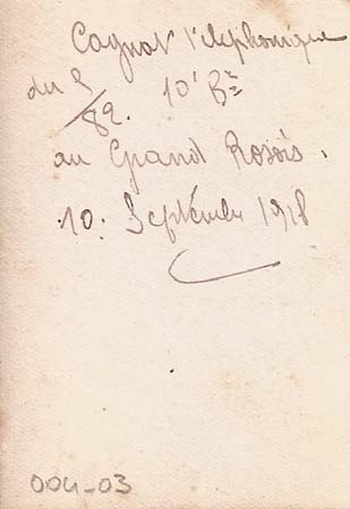 Cagnat Téléphonique
du 5/82. 10e Bie
au Grand Rosois.
10. Septembre 1918
004-03